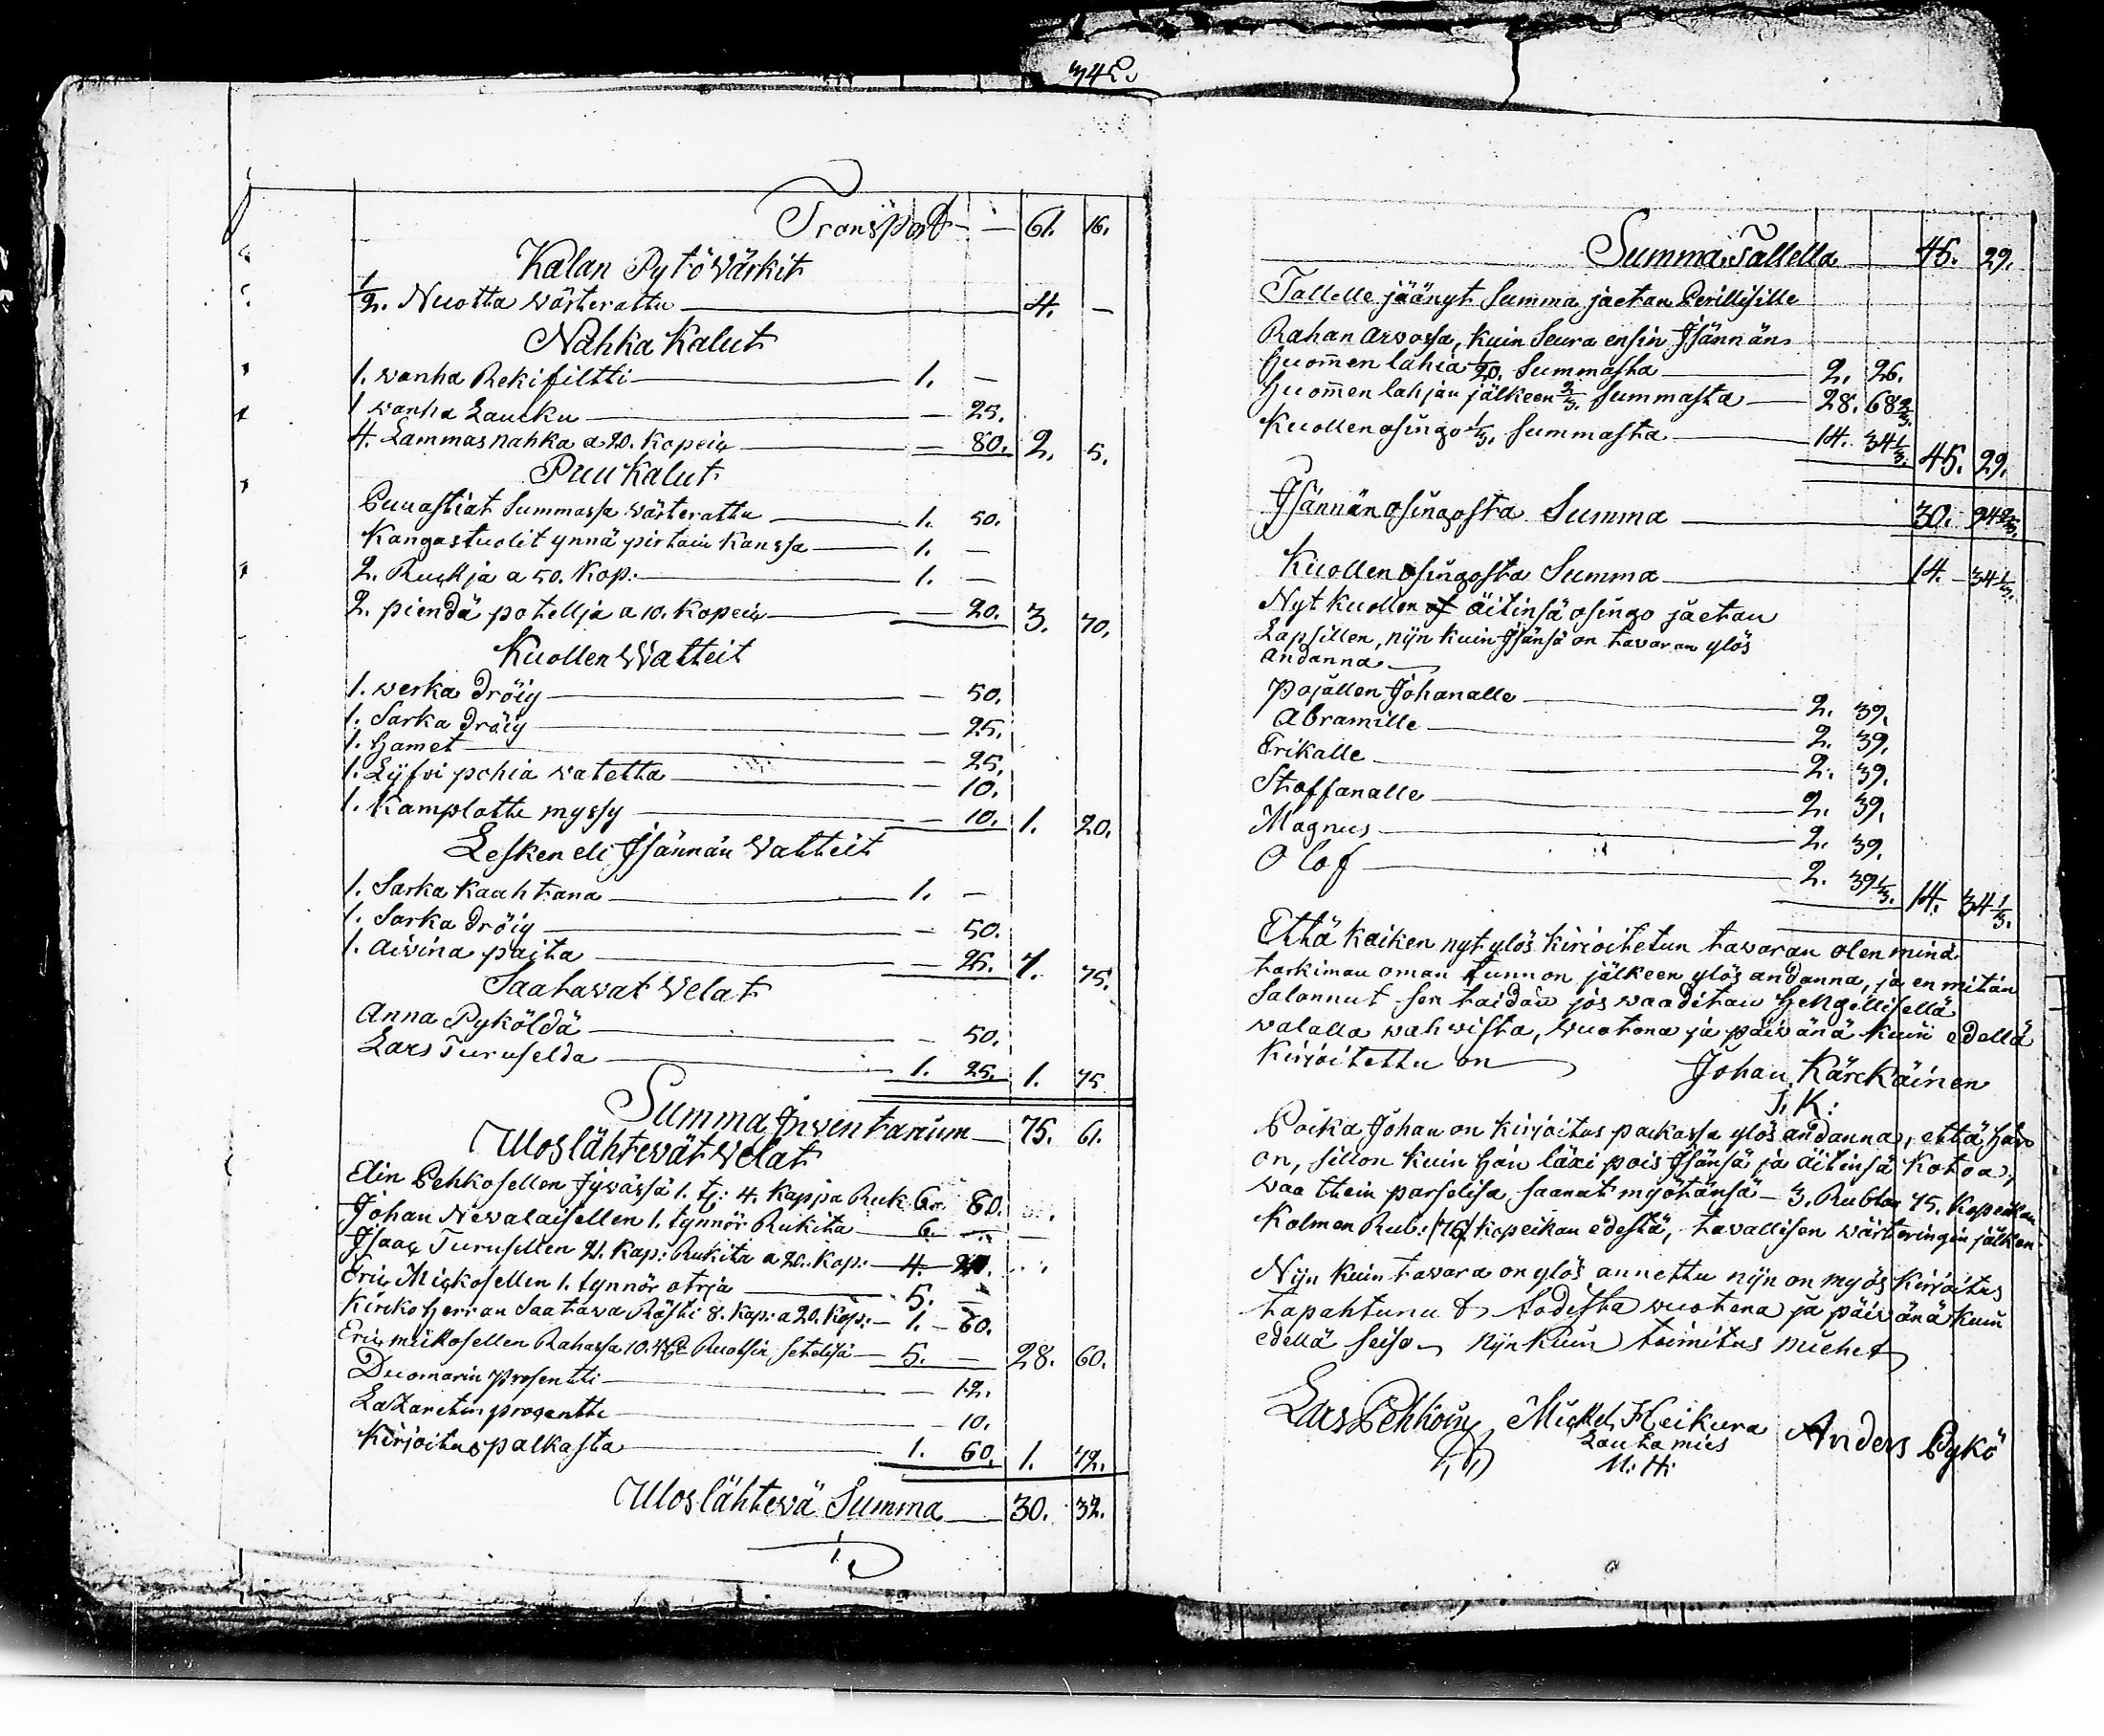 348.
Transport — 61. 16.
Kalan Pytö Wärkit
1/2. Nuotta wärterattu — 4. —
Nahka Kalut
1. wanha Rekifiltti — 1. —
1 wanha Laucku — 25.
4. Lammasnahka a 20. Kopeic — 80. 2. 5.
Puu Kalut
Puuastiat Summassa wärterattu — 1. 50.
Kangastuolit ynnä pirtain Kanssa — 1. —
2. Ruckja a 50. Kop: — 1. —
2. piendä potellja a 10. Kopeic — 20. 3. 70.
Kuollen Watteit
1. werka dröig — 50.
1. Sarka dröig — 25.
1. Hamet — 25.
1. Lijfvi pohia watetta — 10.
1. Kamplotti myssy — 10. 1. 20.
Lesken eli Jsännän Watteit
1. Sarka Kaahtana — 1. —
1. Sarka dröig — 50.
1. aivina paita — 25. 1. 75.
Saatawat Welat
Anna Pyköldä — 50.
Lars Turuselda — 1. 25. 1. 75
Summa Jnventarium — 75. 61.
Uloslähtevät Velat
Elin Pehkosellen Jywässä 1. t: 4. Kappa Ruk. 6. 80.
Johan Nevalaisellen 1. tynnör Rukita — 6. —
Jsaac Turusellen 21. Kap: Rukita a 20. Kop: — 4. 20.
Eric Mickosellen 1. tynnör otrja — 5. —
Kircko herran Saatawa Rästi 8. Kap: a 20. Kop: — 1. — 60.
Eric mickosellen Rahassa 10. Ruotsin setelisä — 5. — 28. 60.
Duomarin prosentti — 12.
LaZaretin prosentti — 10.
Kirjoituspalkasta — 1. 60. 1. 72.
Uloslähtevä Summa — 30. 32.
Summa Tallella — 45. 29.
Tallelle jäänyt Summa jaetan Perillisille
Rahan arvossa, kuin Seura ensin Jsännän
Huomen lahia 1/20. Summasta — 2. 26.
Huomen lahjan jälkeen 2/3. Summasta — 28. 68 2/3.
Kuollen osingo 1/3. Summasta — 14. 34 1/3. 45. 29.
Jsännän osingosta Summa — 30. 94 2/3.
Kuollen osingosta Summa — 14. — 34 1/3.
Nyt Kuollen äitinsä osingo jaetan
Lapsillen, nijn kuin Jsänsä on tavaran ylös
andanna —
Pojallen Johanalle — 2. 39.
Abramille — 2. 39.
Erikalle — 2. 39.
Staffanalle — 2. 39.
Magnus — 2. 39.
Olof — 2. 39 1/3. 14. 34 1/3.
Että kaiken nyt ylös kirjoitetun tavaran olen minä
tarkiman oman tunnon jälkeen ylös andanna, ja en mitän
Salannut sen taidan jos waaditan Hengellisellä
walalla wahwista, wuotona ja päivänä kuin edellä
Kirjoitettu on — Johan Kärckäinen
J. K:
Poika Johan on kirjoitus paikassa ylös andanna, että hän
on, sillon kuin hän läxi pois Jsänsä ja äitinsä Kotoa,
waattein parselisa, saanut myötänsä — 3. Rublan 75. Kopeikan
Kolmen Rub: /75/ Kopeikan edestä, tavallisen wärteringin jälken.
Nijn kuin tavara on ylös annettu nijn on myös kirjoitus
tapahtunu todista wuotena ja päivänä kuin
edellä seiso, nijn kuin toimitus miehet
Lars Pehkoin Mickel Heikura Anders Pykö
Lautamies
M: H: